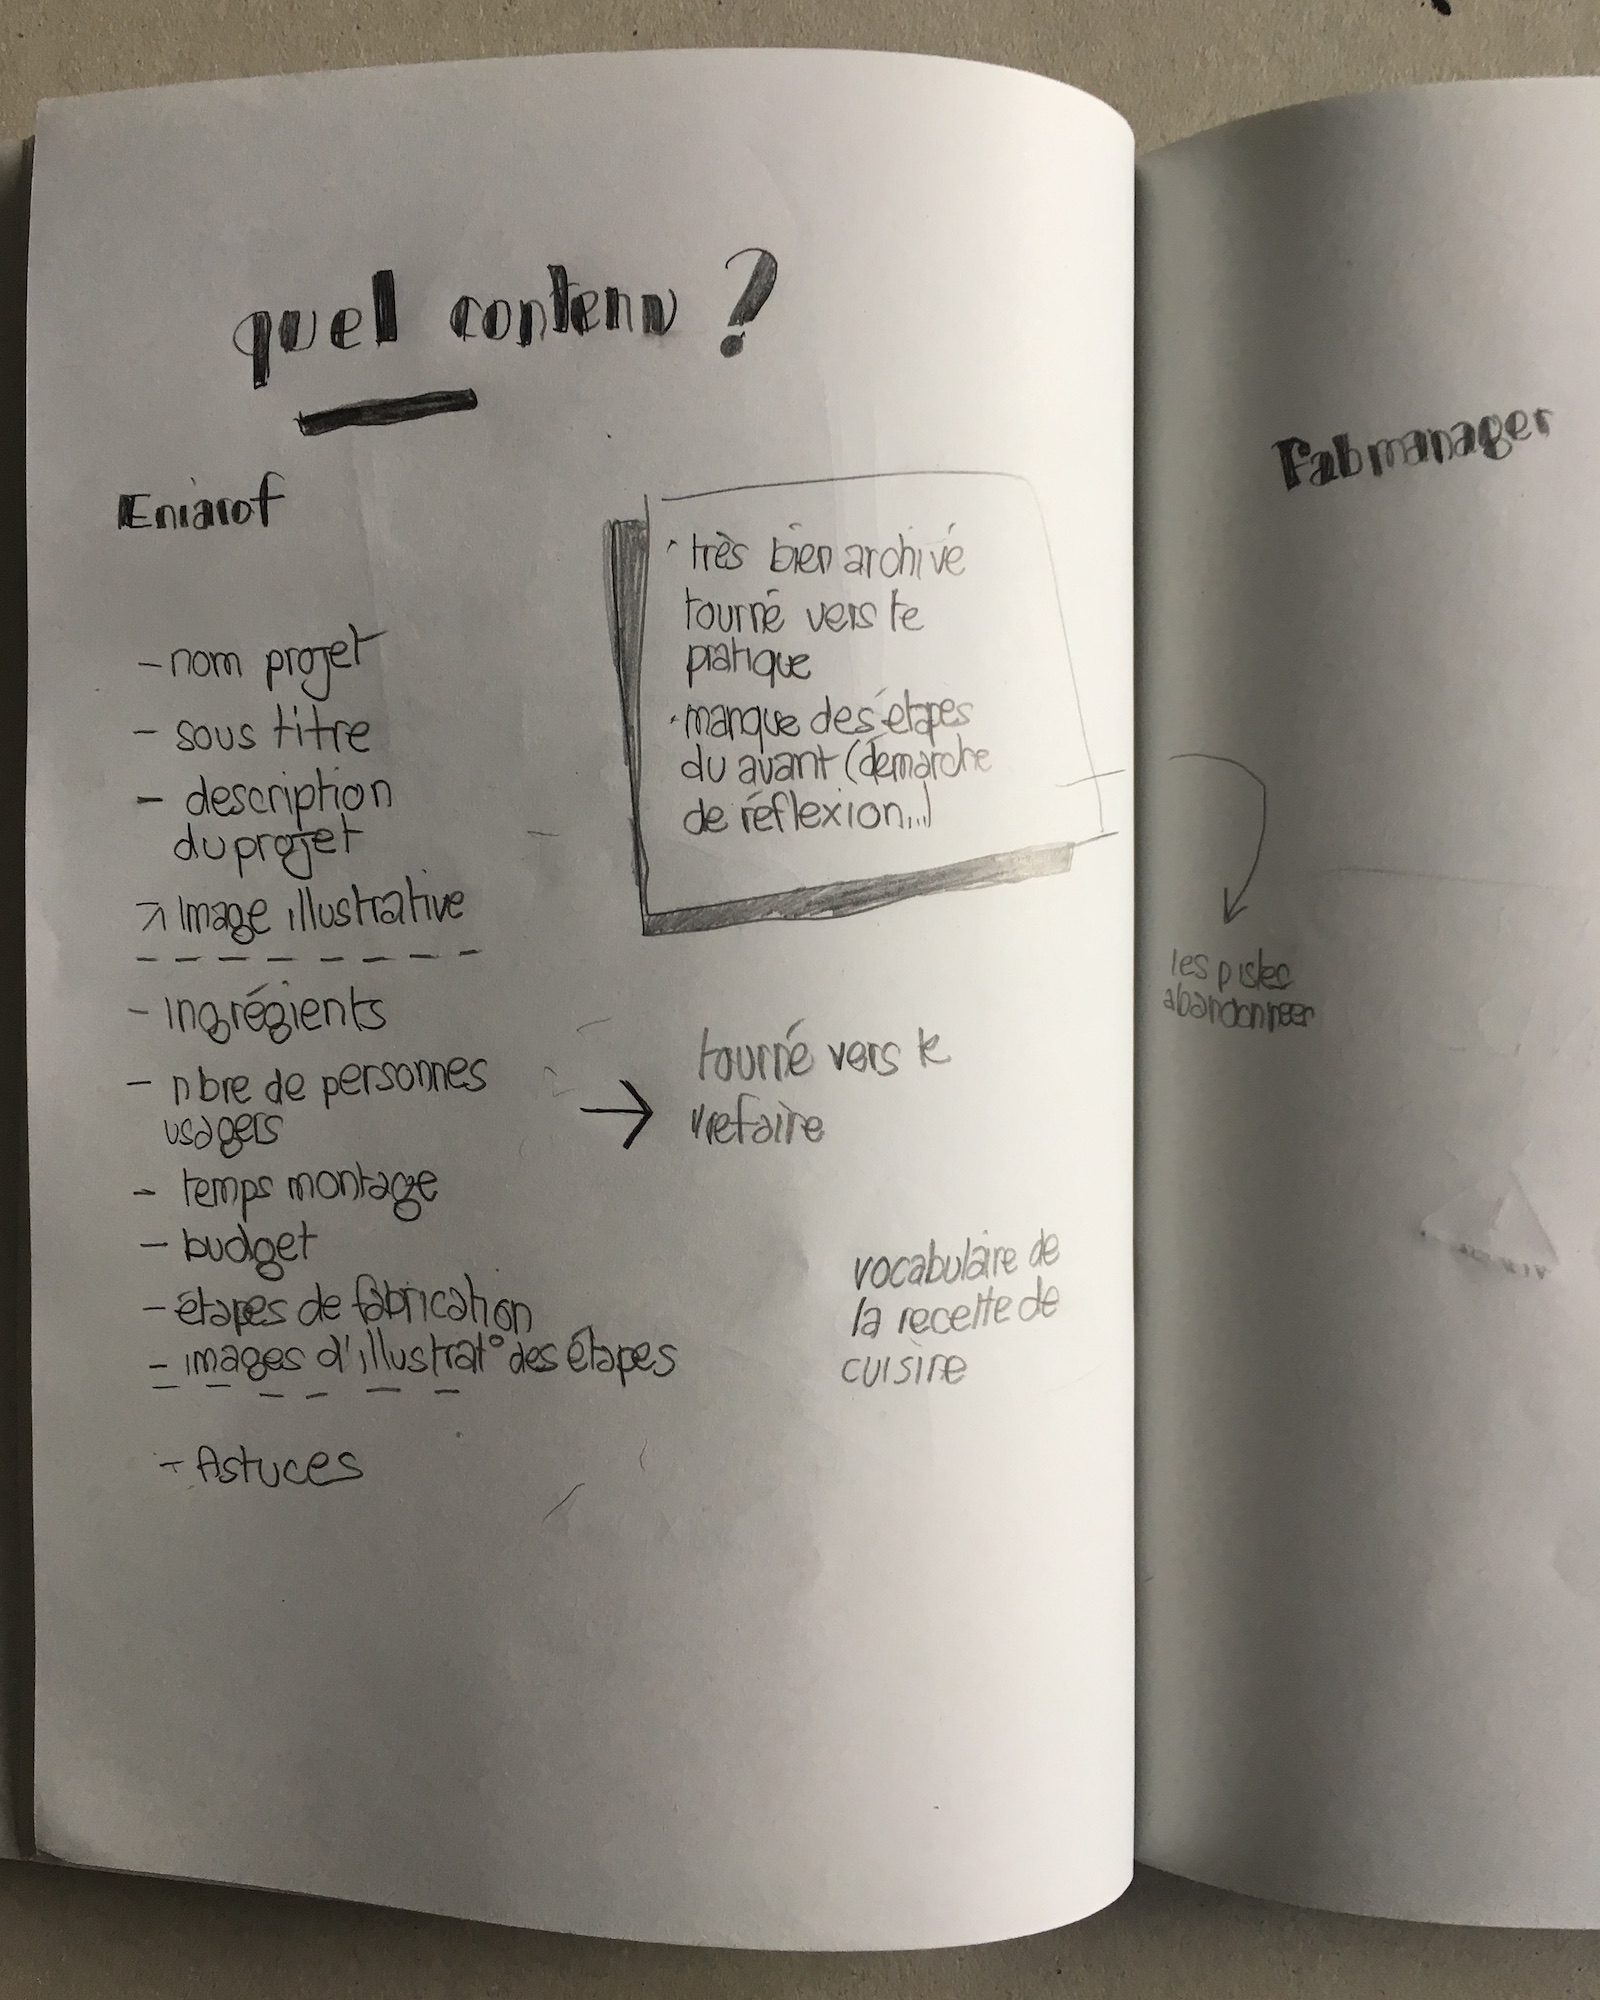 quel contenu ?
Eniarof
- nom projet
- sous titre
- description
du projet
↗ Image illustrative
- Ingrégients
- nbre de personnes
usagers
- temps montage
- budget
- étapes de fabrication
- images d'illustrat° des étapes
- Astuces
· très bien archivé
tourné vers le
pratique
· manque des étapes
du avant (démarche
de réflexion...)
→ tourné vers le
refaire
vocabulaire de
la recette de
cuisine
Fabmanager
les pistes
abandonneer